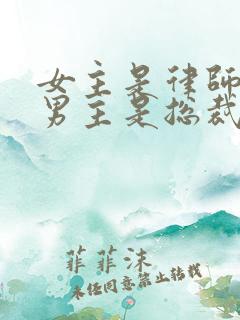 女主是律师
男主是总裁
菲菲沫
未经同意禁止转载